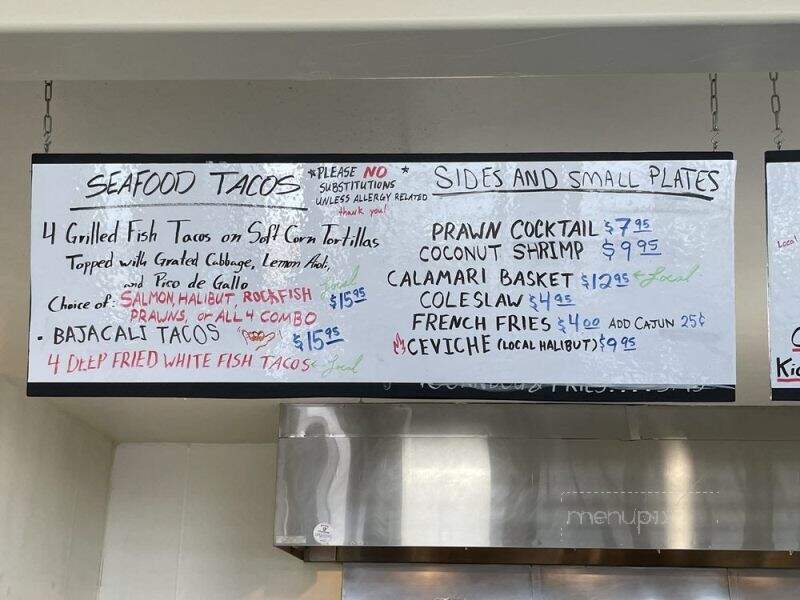 SEAFOOD TACOS
*PLEASE NO *
SUBSTITUTIONS
UNLESS ALLERGY RELATED
thank you!
4 Grilled Fish Tacos on Soft Corn Tortillas
Topped with Grated Cabbage, Lemon Aioli,
and Pico de Gallo
Choice of: SALMON, HALIBUT, ROCKFISH
PRAWNS, or ALL 4 COMBO
Local
$15.95
• BAJACALI TACOS $15.95
4 DEEP FRIED WHITE FISH TACOS Local
SIDES AND SMALL PLATES
PRAWN COCKTAIL $7.95
COCONUT SHRIMP $9.95
CALAMARI BASKET $12.95 Local
COLESLAW $4.95
FRENCH FRIES $4.00 ADD CAJUN 25¢
CEVICHE (LOCAL HALIBUT) $9.95
Local
Kid
menupix